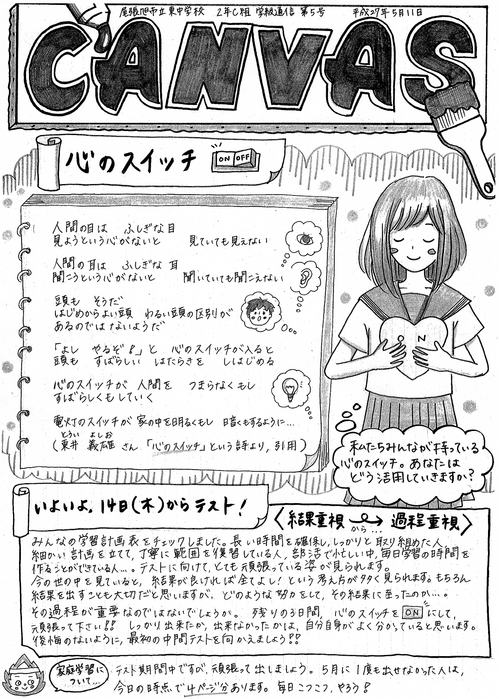 尾張旭市立東中学校 2年C組 学級通信 第5号 平成27年5月11日
CANVAS
心のスイッチ ON OFF
人間の目は ふしぎな目
見ようという心がないと 見ていても見えない
人間の耳は ふしぎな耳
聞こうという心がないと 聞いていても聞こえない
頭も そうだ
はじめからよい頭 わるい頭の区別が
あるのでは ないようだ
「よし やるぞ!」と 心のスイッチが入ると
頭も すばらしい はたらきを しはじめる
心のスイッチが 人間を つまらなくもし
すばらしくもしていく
電灯のスイッチが 家の中を明るくもし 暗くもするように…
とうい よしお
(東井 義雄 さん 「心のスイッチ」という詩より、引用)
ON
私たちみんなが持っている
心のスイッチ。あなたは
どう活用していきますか?
いよいよ、14日(木)からテスト!
〈結果重視から→過程重視〉
みんなの学習計画表をチェックしました。長い時間を確保し、しっかりと取り組めた人、
細かい計画を立てて、丁寧に範囲を復習している人、部活で忙しい中、毎日学習の時間を
作ることができている人…。テストに向けて、とても頑張っている姿が見られます。
今の世の中を見ていると、結果が良ければ全てよし!という考え方が多く見られます。もちろん
結果を出すことも大切だと思いますが、どのような努力をして、その結果に至ったのか…。
その過程が重要なのではないでしょうか。残りの3日間、心のスイッチをONにして、
頑張って下さい!!しっかり出来たか、出来なかったかは、自分自身がよく分かっていると思います。
後悔のないように、最初の中間テストを向かえましょう!!
家庭学習に
ついて…
テスト期間中ですが、頑張って出しましょう。5月に1度も出せなかった人は、
今日の時点で4ページ分あります。毎日コツコツ、やろう!